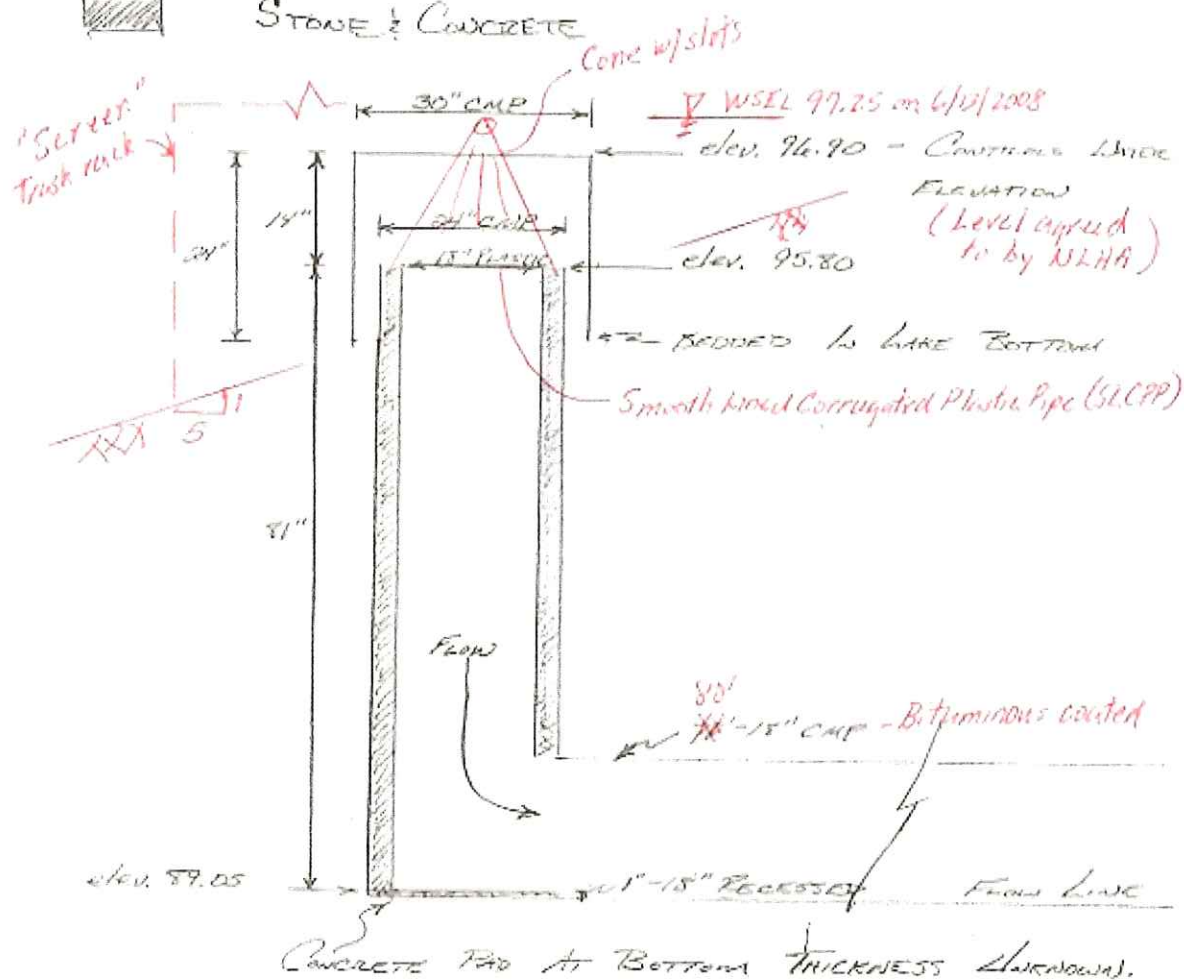 STONE & CONCRETE
Cone w/slots
"Screen"
Trash rack
30" CMP
WSEL 97.25 on 6/13/2008
elev. 96.90 - CONTROLS WATER
ELEVATION
(Level agreed
to by NLHA)
14"
24"
24" CMP
18" PLASTIC
elev. 95.80
BEDDED IN LAKE BOTTOM
Smooth Lined Corrugated Plastic Pipe (SLCPP)
1
5
81"
FLOW
80'
-18" CMP - Bituminous coated
elev. 89.05
1"-18" RECESSED
FLOW LINE
CONCRETE PAD AT BOTTOM THICKNESS UNKNOWN